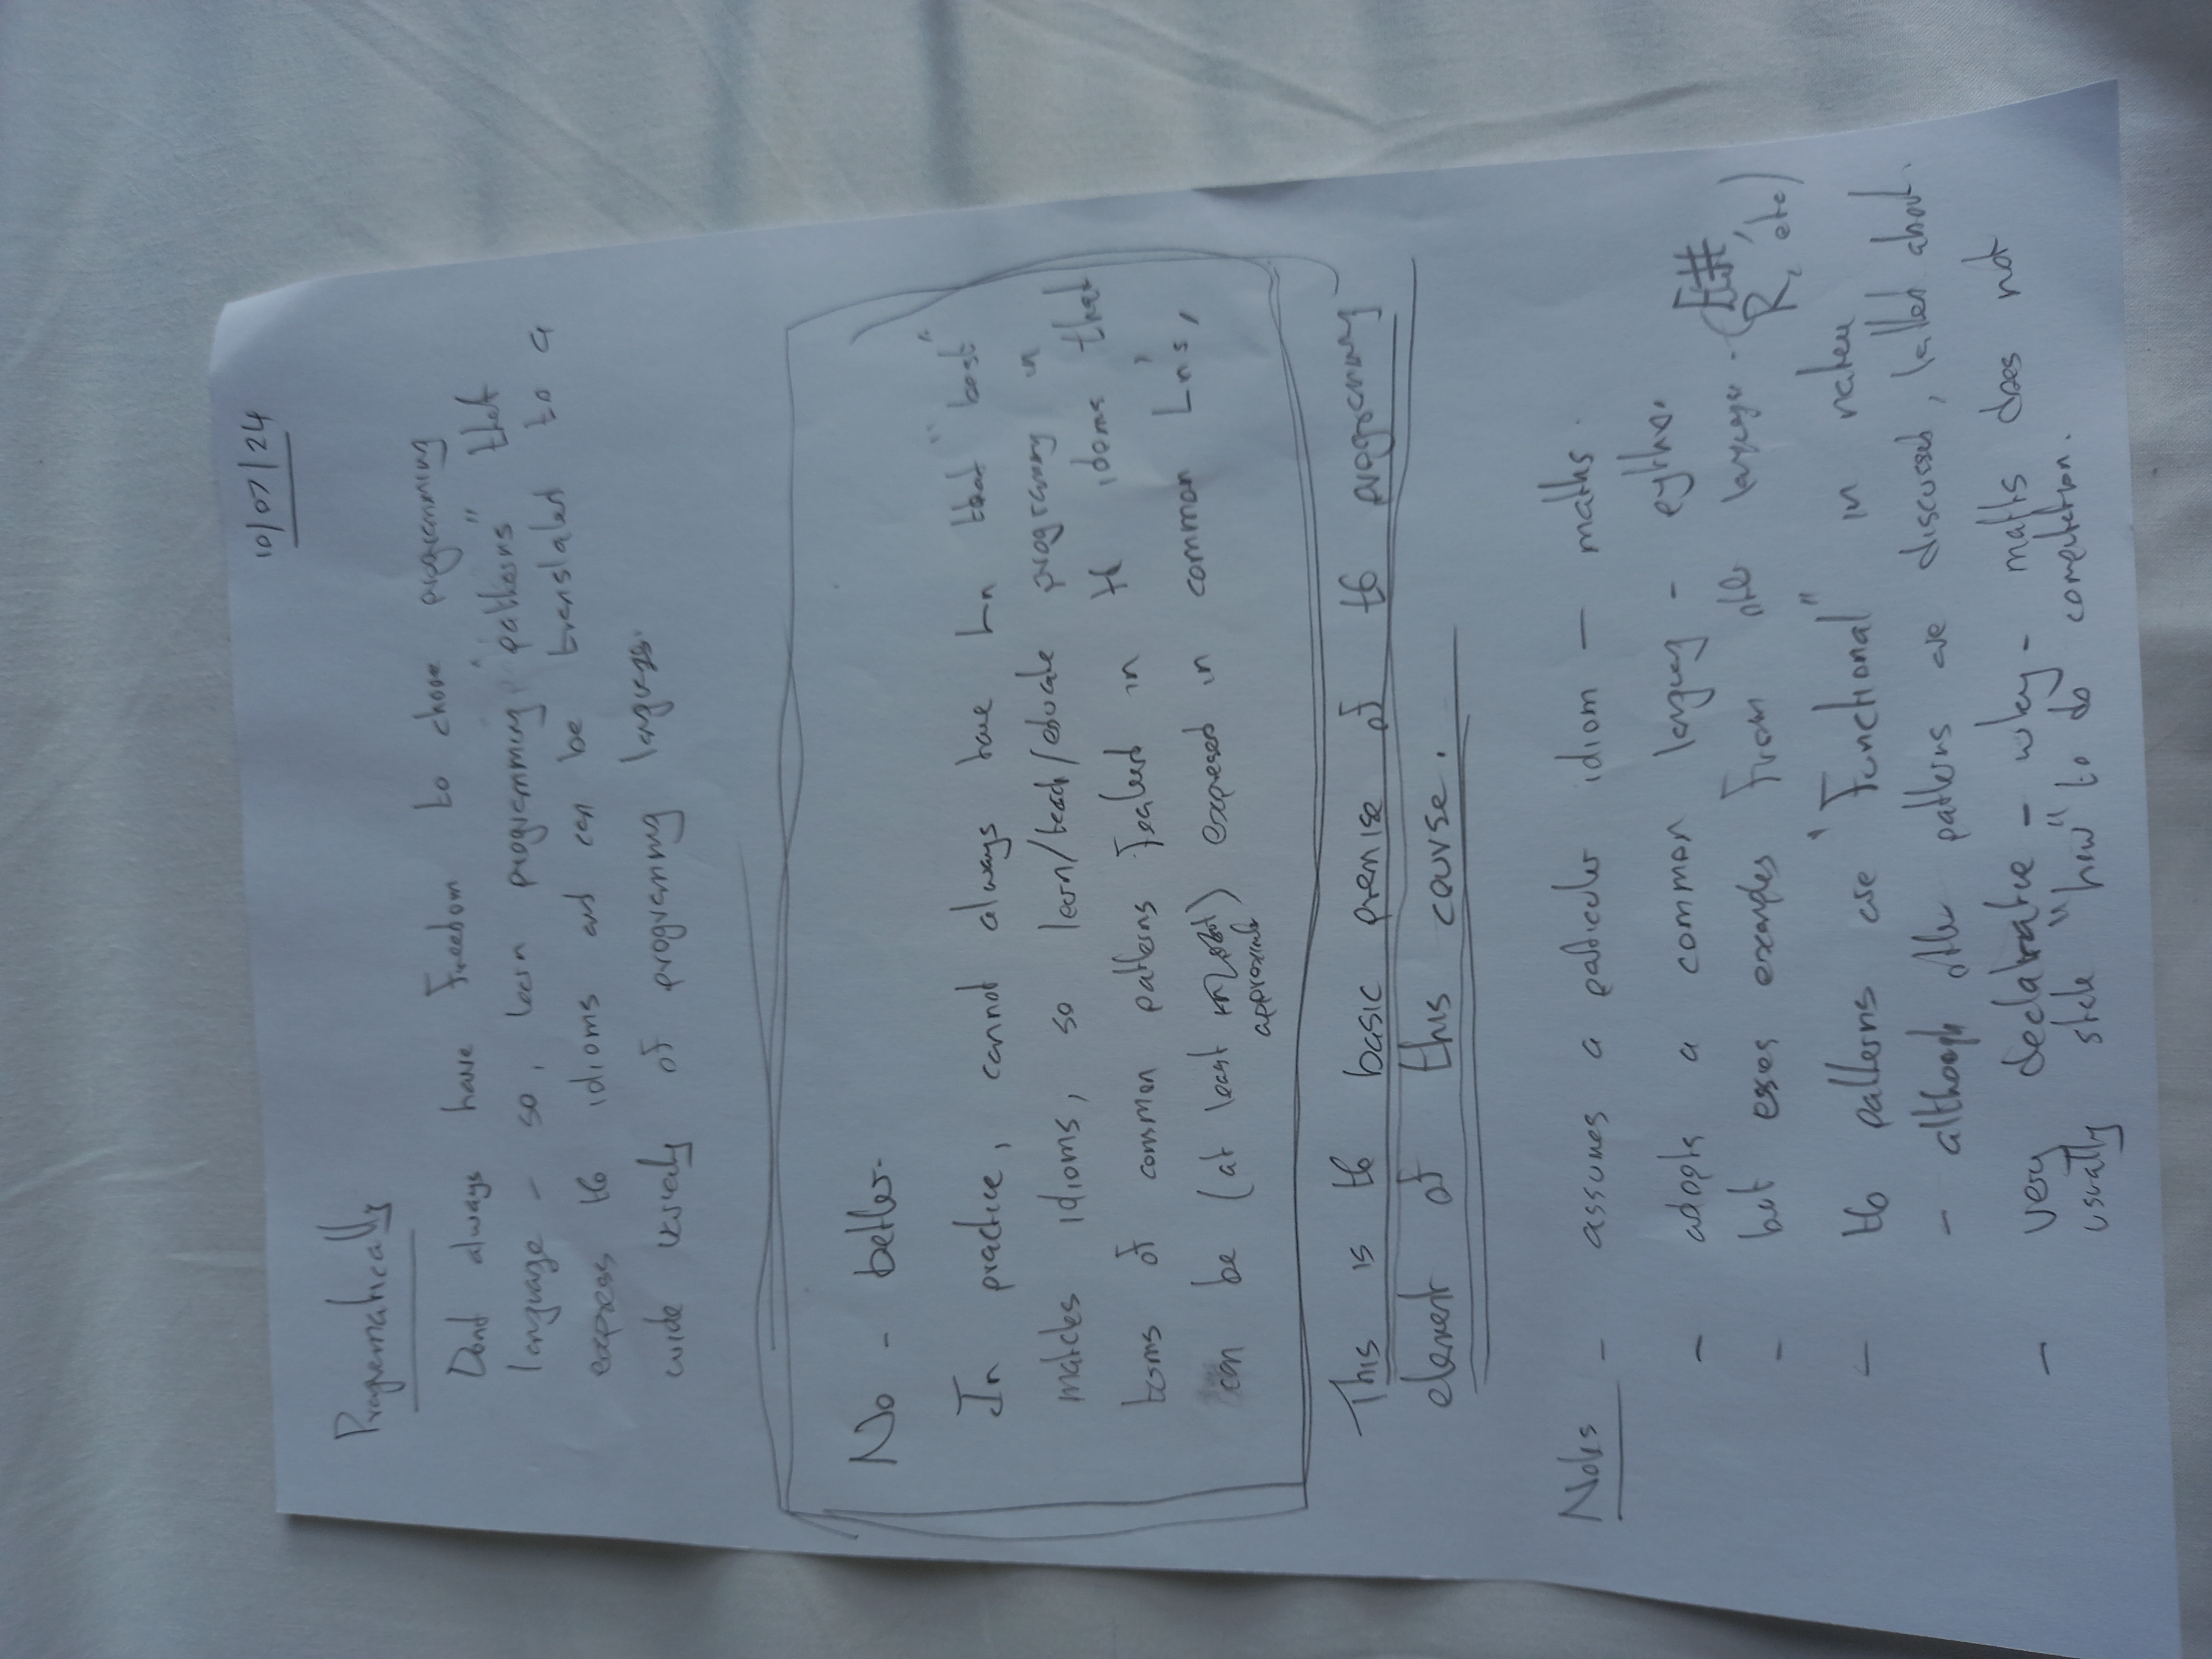 10/07/24
Programatically
Dont always have Freedom to choose programming
language - so, learn programming "patterns" that
express the idioms and can be translated to a
wide variety of programming languages.
No - better.
In practice, cannot always have Ln that "best"
matches idioms, so learn/teach/educate programming in
terms of common patterns featured in the idioms that
can be (at least
approximate) expressed in common Ln's,
This is the basic premise of the programming
element of this course.
Notes - assumes a particular idiom - maths.
- adopts a common language - python.
- but uses examples From other languages - (F#,
R, etc)
- the patterns are "Functional" in nature
- although other patterns are discussed, talked about.
- very declarative - why - maths does not
usually state "how" to do computation.